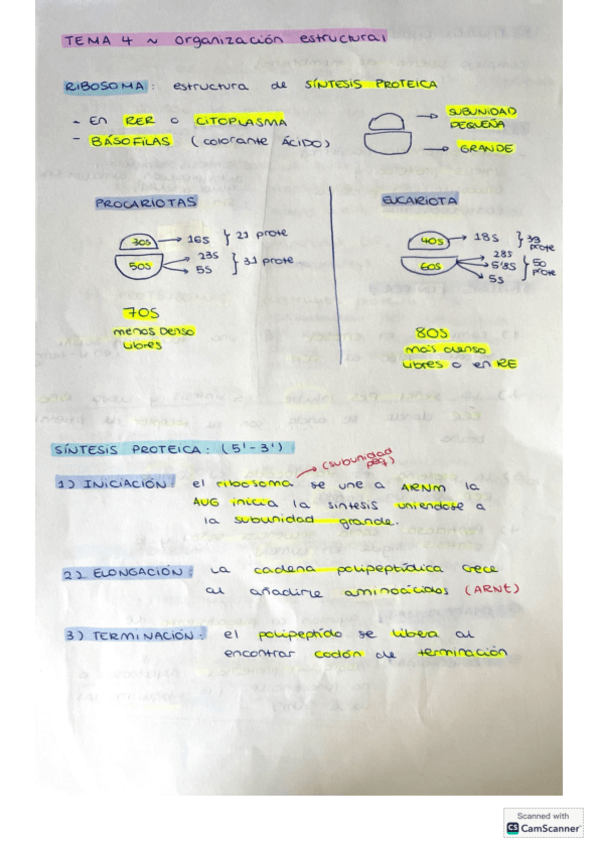 TEMA 4 ~ Organización estructural
RIBOSOMA: estructura de SÍNTESIS PROTEICA
- EN RER O CITOPLASMA
- BÁSOFILAS (colorante ÁCIDO)
SUBUNIDAD
PEQUEÑA
GRANDE
PROCARIOTAS
30S
16S
21 prote
50S
23S
5S
31 prote
70S
menos denso
libres
EUCARIOTA
40S
18S
33
prote
60S
28S
5'8S
5S
50
prote
80S
más denso
libres o en RE
SÍNTESIS PROTEICA: (5'-3')
(subunidad
peq)
1) INICIACIÓN: el ribosoma se une a ARNm la
AUG inicia la síntesis uniendose a
la subunidad grande.
2) ELONGACIÓN: La cadena polipeptídica crece
al añadirle aminoácidos (ARNt)
3) TERMINACIÓN: el polipeptido se libera al
encontrar codón de terminación
Scanned with
CS CamScanner